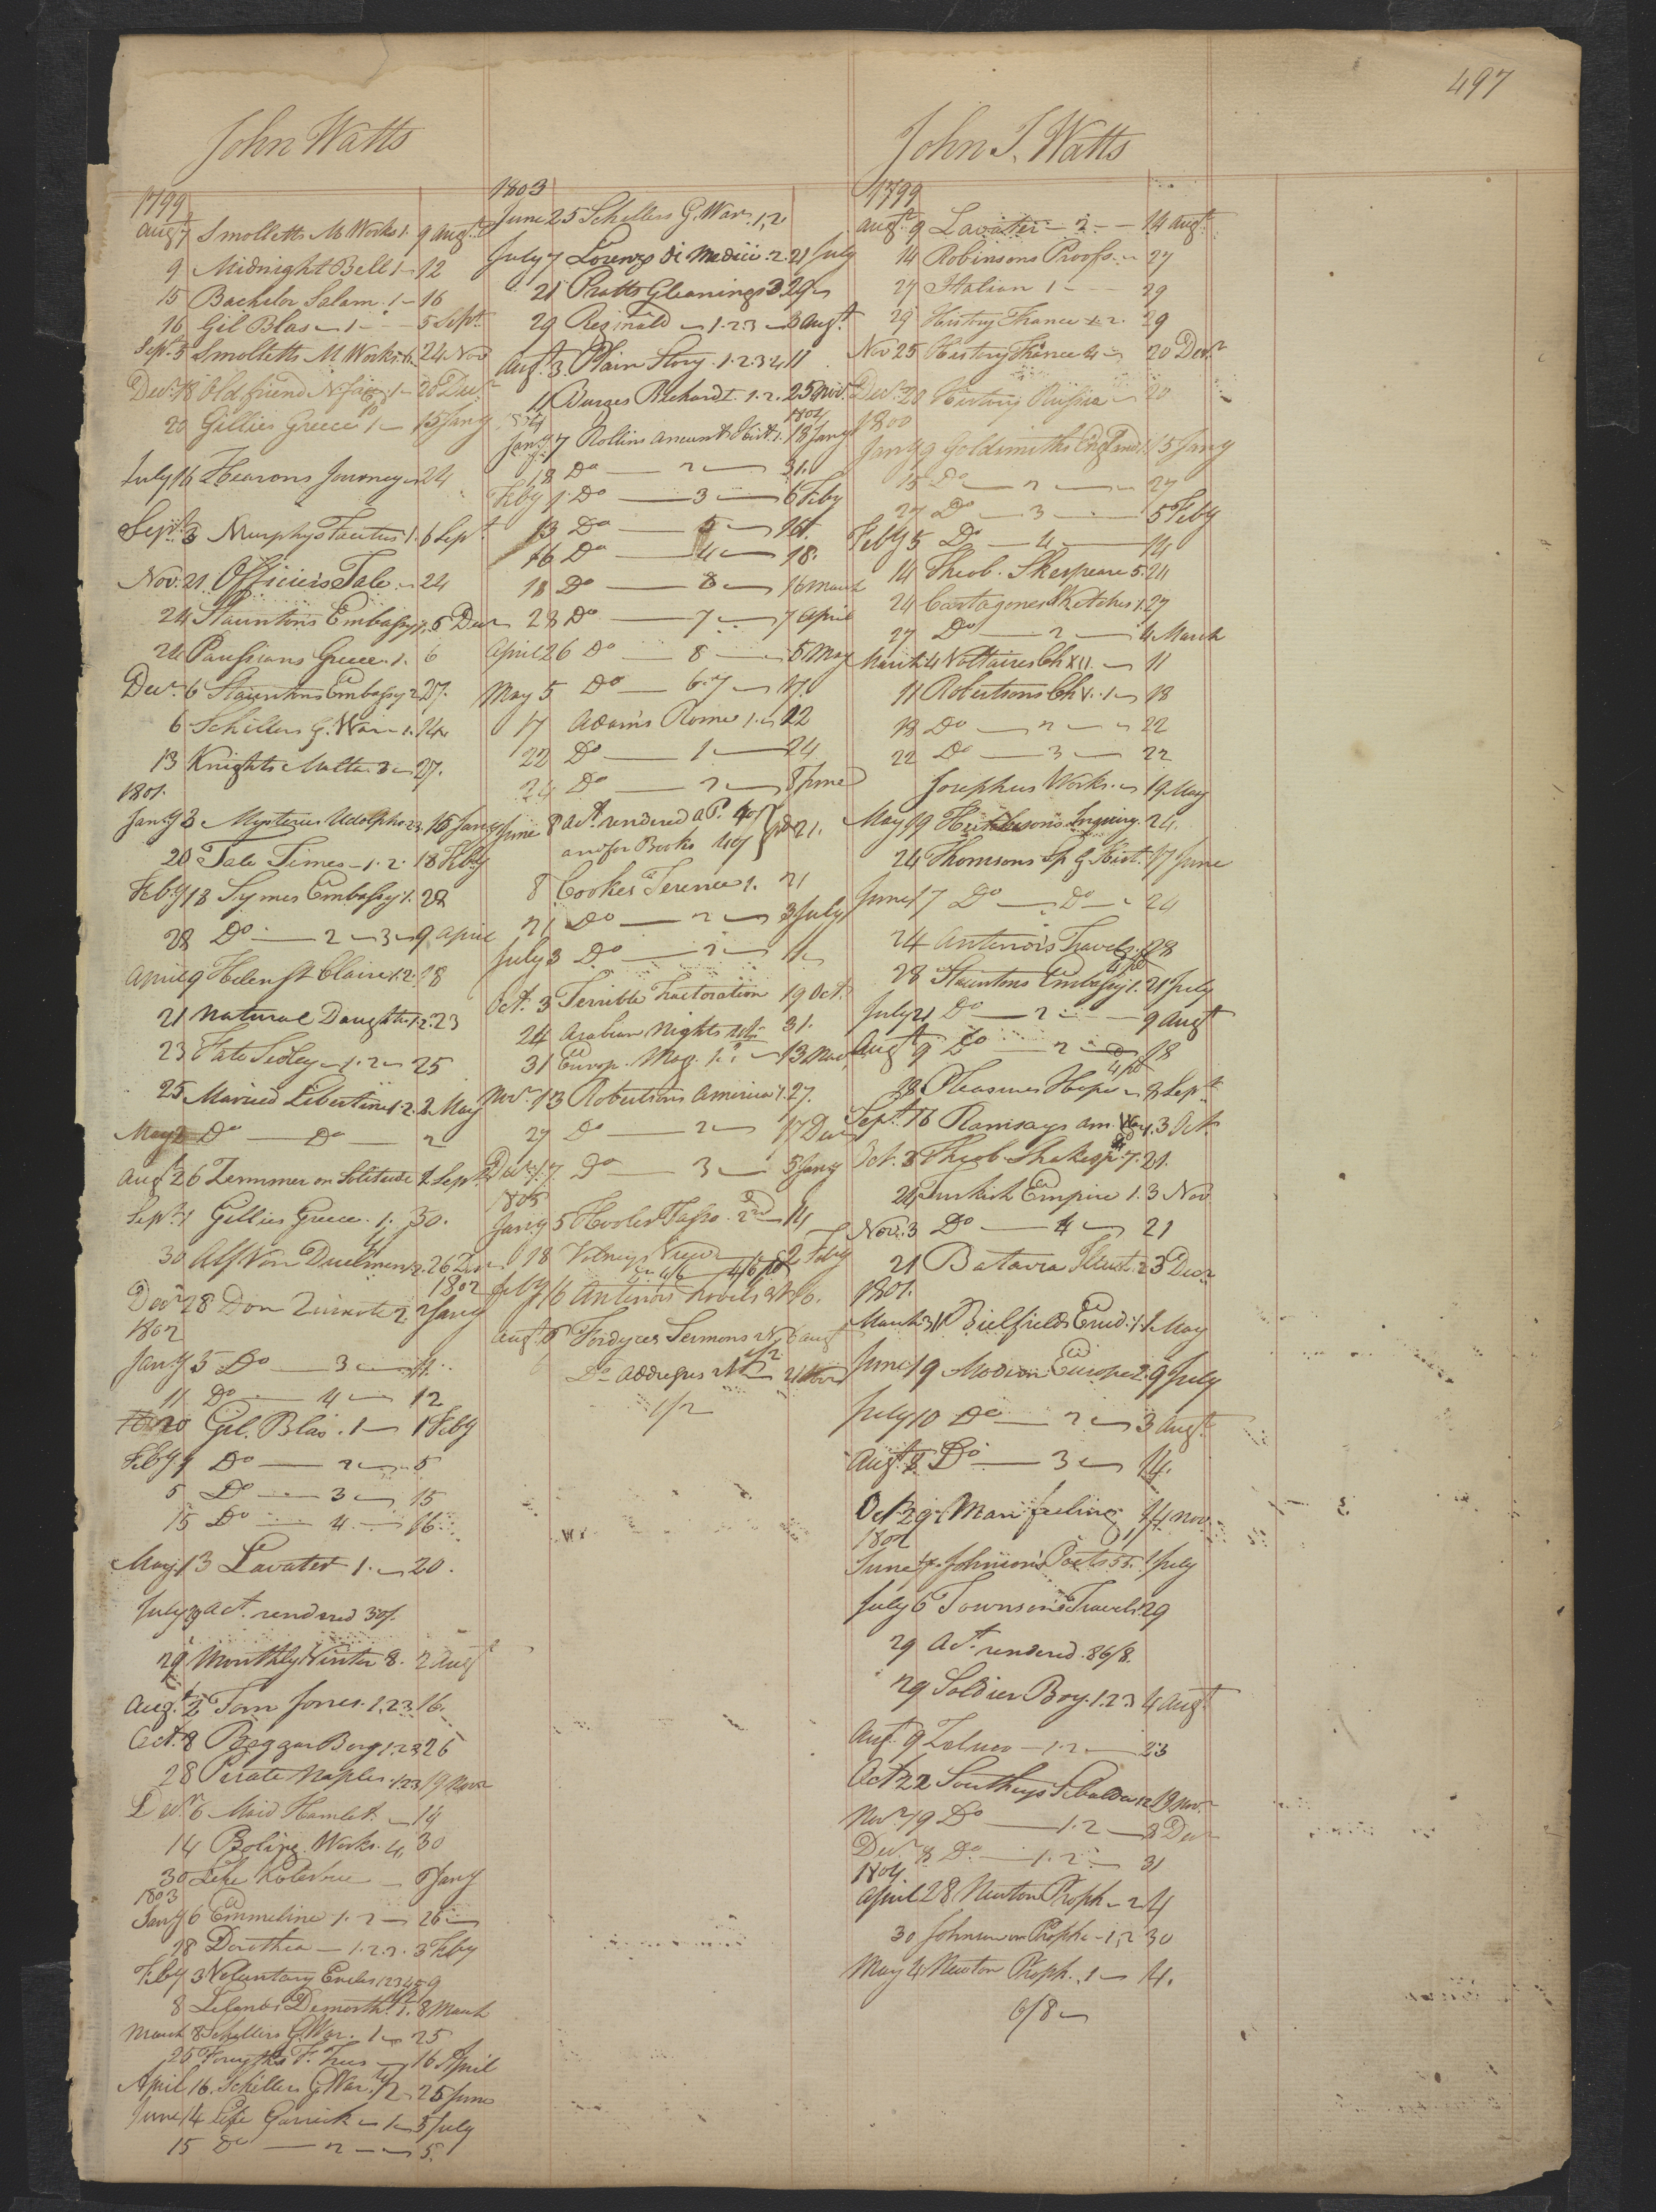 497
John Watts
1799
Augt 7 Smolletts M Works 1. 9 Augt
9 Midnight Bell 1 12
15 Bachelor Salam. 1 16
16 Gil Blas 1 5 Sept
Sept 5 Smolletts M Works 6. 24 Nov
Decr 18 Old friend N face 1 20 Decr
20 Gillies Greece 1 15 Jany
July 16 Hearons Journey 24
Sept 3 Murphys Tacitus 1. 6 Sept
Nov. 21 Officers Tale 24
24 Stauntons Embassy 1. 6 Decr
24 Paussians Greece. 1. 6
Decr 6 Stauntons Embassy 2 27.
6 Schillers G. War 1. 24
13 Knights Malta 3 27.
1801.
Jany 3 Mysteries Udolpho 2 3. 16 Jany
20 Tale Times 1. 2. 18 Feby
Feby 18 Symes Embassy 1. 28
28 Do 2 3 9 April
April 9 Helen St Claire 1.2. 18
21 Natural Daughter 1 2. 23
23 Fate Sedley 1. 2 25
25 Married Libertine 1 2. 2 May
May 2 Do Do 2
Augt 26 Zimmer on Solitude 1. Sept
Sept 1 Gillies Greece. 1. 30.
30 Alf Von Duelmen 2. 26 Decr
1802
Decr 28 Don Quixote 2. 2 Jany
1802
Jany 5 Do 3 11.
11 Do 4 12
20 Gil. Blas. 1 1 Feby
Feby 1 Do 2 5
5 Do 3 15
15 Do 4 16
May 13 Lavater 1. 20.
July 29 Act. rendered 30/.
29 Monthly Visitor 8. 2 Augt
Augt 2 Tom Jones. 1.2.3 16.
Oct. 8 Beggar Boy 1.2.3 26
28 Pirate Naples. 1.2.3 19 Novr
Decr 6 Maid Hamlet. 14
14 Boling. Works. 4. 30
30 Life Kotzebue 6 Jany
1803
Jany 6 Emmeline 1. 2 26
28 Dorothea 1. 2. 3. 3 Feby
Feby 3 Voluntary Exiles 1 2 3 4 5 9
8 Lelands Demosth. 1. 8 March
March 8 Schillers G War. 1 25
25 Forsyths F. Trees 16 April
April 16. Schillers G War. 2 25 June
June 14 Life Garrick 1 5 July
15 Do 2 5.
1803
June 25 Schillers G. War. 1, 2
July 7 Lorenzo di Medici. 2. 21 July
21 Pratts Gleanings 3 29
29 Reginald 1. 2 3 3 Augt
Augt 3. Plain Story. 1. 2. 3 4 11
11 Burges Richard I. 1. 2. 25 Novr
1804 1804
Jany 7 Rollins Ancient Hist. 1. 18 Jany
18 Do 2 31.
Feby 1 Do 3 6 Feby
13 Do 5 16.
16 Do 4 18.
18 Do 6 16 March
28 Do 7 7 April
April 26 Do 8 5 May
May 5 Do 6. 7 17.
17 Adams Rome 1. 22
22 Do 1 24
24 Do 2 8 June
June 8 Act. rendered a P. 407
and for Books 4/9 21.
8 Cookes Terence 1. 21
21 Do 2 3 July
July 3 Do 2 11
Oct. 3 Terrible Tractoration 19 Oct.
24 Arabian Nights 31.
31 Europ. Mag. 1. 13 Nov.
Novr 13 Robertsons America 1. 27.
27 Do 2 17 Decr
Decr 17. Do 3 5 Jany
1805
Jany 5 Hooles Tasso. 2nd 14
18 Volneys View 2 Feby
Feby 16 Antenors Travels 2d 26.
Augt 6 Fordyces Sermons 2d 6 Augt
Do Addresses 21 Novr
1/2
John I. Watts
1799
Augt 9 Lavater 2 14 Augt
14 Robinsons Proofs. 27
27 Italian 1 29
29 History France 1. 2. 29
Nov 25 History France 4 20 Decr
Decr 20 History Russia 20
1800
Jany 9 Goldsmiths England 1. 15 Jany
15 Do 2 27
27 Do 3 5 Feby
Feby 5 Do 4 14
14 Theob. Skespeare 5. 24
24 Cartagones Sketches 1. 27
27 Do 2 4 March
March 4 Voltaires Ch XII. 11
11 Robertsons Ch V. 1 18
18 Do 2 22
22 Do 3 22
Josephus Works. 19 May
May 19 Hutchesons Inquiry. 24.
24 Thomsons Sp G Hist. 17 June
June 17 Do Do 24
24 Antenors Travels. 28
28 Stauntons Embassy 1. 21 July
July 21 Do 2 9 Augt
Augt 9 Do 2 18
28 Pleasures Hope 8 Sept
Sept 16 Ramsays Am. War 1. 3 Oct.
Oct. 3 Theob. Shakesp. 7. 21.
24 Turkish Empire 1. 3 Nov
Nov. 3 Do 4 21
21 Batavia Illust. 23 Decr
1801.
March 31 Bielfields Erud. 1 1 May
June 19 Modern Europe 2. 9 July
July 10 Do 2 3 Augt
Augt 8 Do 3 14.
Oct 29 Man feeling 14 Nov.
1802
June 4 Johnsons Poets 55. 1 July
July 6 Townsons Travels 29
29 Act. rendered. 86/8.
29 Soldier Boy. 1. 2 3 4 Augt
Augt 9 Zeluco 1. 2 23
Oct 22 Southeys Thalaba 1 2 19 Novr
Novr 19 Do 1. 2 8 Decr
Decr 8 Do 1. 2 31
1804
April 28 Newton Proph. 2 4
30 Johnson on Proph. 1, 2 30
May 4 Newton Proph. 1 14.
6/8